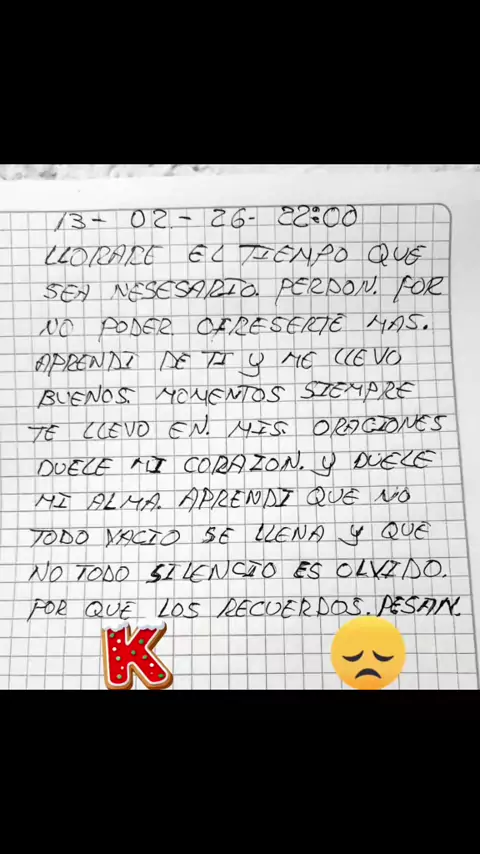 13- 02.- 26- 22:00
LLORARE EL TIEMPO QUE
SEA NESESARIO. PERDON. POR
NO PODER OFRESERTE MAS.
APRENDI DE TI Y ME LLEVO
BUENOS. MOMENTOS SIEMPRE
TE LLEVO EN. MIS. ORACIONES
DUELE MI CORAZON. Y DUELE
MI ALMA. APRENDI QUE NO
TODO VACIO SE LLENA Y QUE
NO TODO SILENCIO ES OLVIDO.
POR QUE LOS RECUERDOS. PESAN.
K